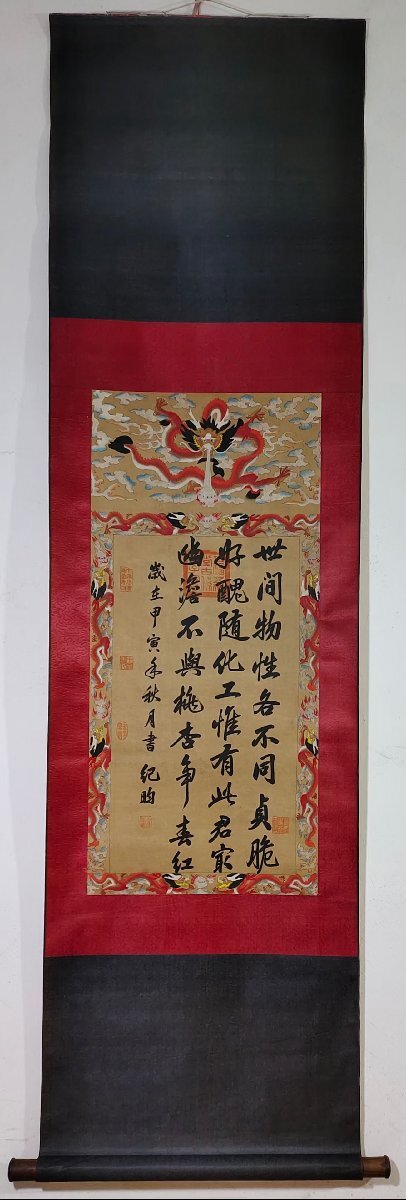 世间物性各不同贞脆
好醜随化工惟有此君寂
幽澹不與桃李争春红
歲在甲寅年秋月書 纪昀